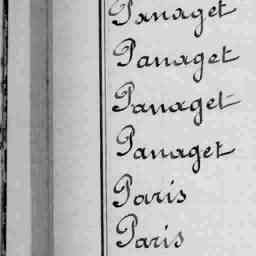 Panaget
Panaget
Panaget
Panaget
Paris
Paris